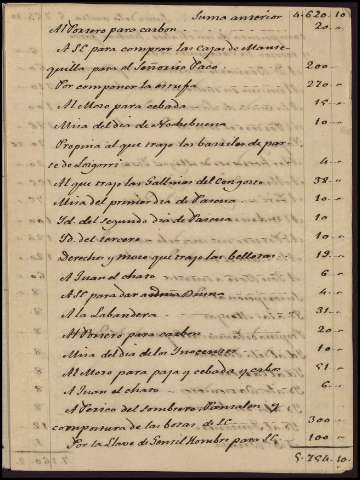 Suma anterior 4.620.10
Al Portero para carbon 20 -
A SE para comprar las cajas de Mante-
quilla para el Señorito Paco 200 -
Por componer la estufa 270 -
Al Moso para cebada 15 -
Misa del dia de Nochebuena 10 -
Propina al que trajo los barriles de par-
te de Loigorri 4 -
Al que trajo las Gallinas del Congosto 38 -
Misa del primer dia de Pascua 10 -
Yd. del segundo dia de Pascua 10
Yd. del tercero 10 -
Derechos y moso que trajo las bellotas 19 -
A Juan el chato 6 -
A SE para dar a 4 -
A la Labandera 31 -
Al Portero para carbon 20 -
Misa del dia de los Ynocentes 10 -
Al Moso para paja y cebada y cabo 51 -
A Juan el chato 6 -
A Perico del Sombrero Pantalon y
compostura de las botas de SE 300 -
Por la Llave de Gentil Hombre para SE 100 -
5.754.10